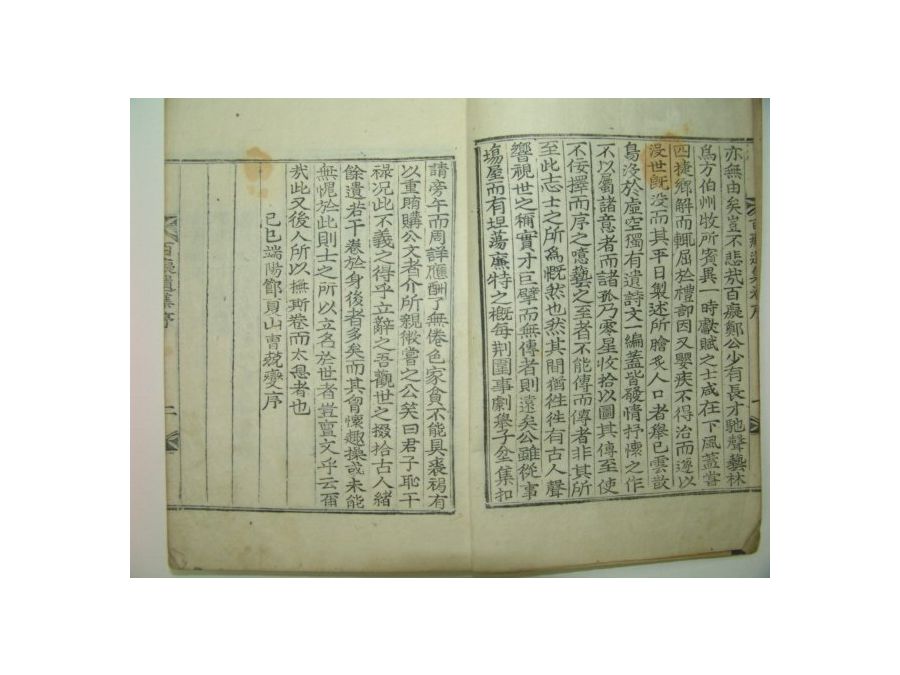 亦無由矣豈不悲㦲百癡鄭公少有長才馳聲藝林
爲方伯州牧所賓異一時獻賦之士咸在下風蓋嘗
四捷鄕解而輒屈於禮部因又嬰疾不得治而遂以
沒世旣沒而其平日製述所膾炙人口者擧已雲散
鳥沒於虛空獨有遺詩文一編蓋皆發情抒懷之作
不以屬諸意者而諸孤乃零星收拾以圖其傳至使
不佞擇而序之噫藝之至者不能傳而傳者非其所
至此志士之所爲慨然也然其間猶徃徃有古人聲
響視世之稱實才巨擘而無傳者則遠矣公雖從事
塲屋而有坦蕩廉特之槪每荆圍事劇擧子坌集扣
請旁午而周詳應酬了無倦色家貧不能具裘褐有
以重賄購公文者介所親微嘗之公笑曰君子恥干
祿况此不義之得乎立辭之吾觀世之掇拾古人緖
餘遺若干卷於身後者多矣而其胷懷趣操或未能
無愧於此則士之所以立名於世者豈亶文乎云爾
㦲此又後人所以撫斯卷而太息者也
己巳端陽節夏山曺兢燮序
百癡遺集序
二